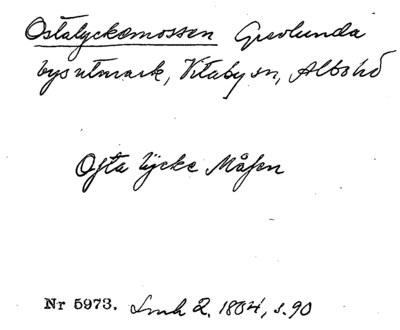 Ostalyckemossen Grevlunda
bys utmark, Vitaby sn, Albo hd
Osta lycke Måsen
Nr 5973. Lmh 2. 1804, s. 90